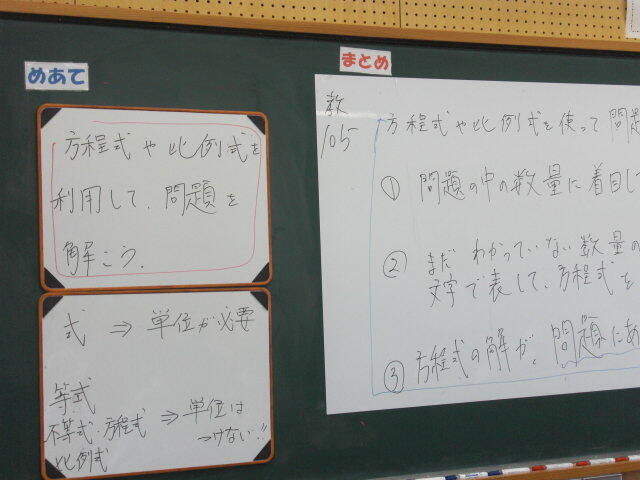 めあて
方程式や比例式を
利用して、問題を
解こう.
式 ⇒ 単位が必要
等式
不等式・方程式 ⇒ 単位は
比例式
つけない!!
まとめ
教
105
方程式や比例式を使って 問題
① 問題の中の数量に着目して
② まだ わかっていない数量の
文字で表して、方程式を
③ 方程式の解が、問題にあ